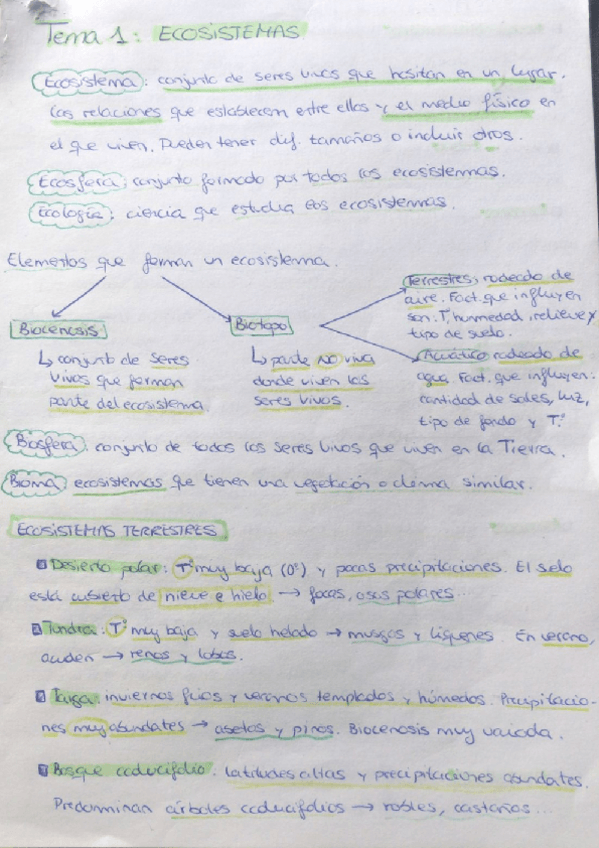 Tema 1: ECOSISTEMAS
Ecosistema: conjunto de seres vivos que habitan en un lugar.
Las relaciones que establecen entre ellos y el medio físico en
el que viven. Pueden tener dif. tamaños o incluir otros.
Ecosfera: conjunto formado por todos los ecosistemas.
Ecología: ciencia que estudia los ecosistemas.
Elementos que forman un ecosistema.
Biocenosis
↳ conjunto de seres
vivos que forman
parte del ecosistema
Biotopo
↳ parte NO viva
donde viven los
seres vivos.
Terrestres; rodeado de
aire. Fact. que influyen
son: Tª, humedad, relieve y
tipo de suelo.
Acuático rodeado de
agua. Fact. que influyen:
cantidad de sales, luz,
tipo de fondo y Tª.
Biosfera: conjunto de todos los seres vivos que viven en la Tierra.
Bioma: ecosistemas que tienen una vegetación o clima similar.
ECOSISTEMAS TERRESTRES
1 Desierto polar: Tª muy baja (0º) y pocas precipitaciones. El suelo
está cubierto de nieve e hielo → focas, osos polares...
2 Tundra: Tª muy baja y suelo helado → musgos y líquenes. En verano,
acuden → renos y lobos.
3 Taiga: inviernos fríos y veranos templados y húmedos. Precipitacio-
nes muy abundates → abetos y pinos. Biocenosis muy variada.
4 Bosque caducifolio: latitudes altas y precipitaciones abundates.
Predominan árboles caducifolios → robles, castaños...